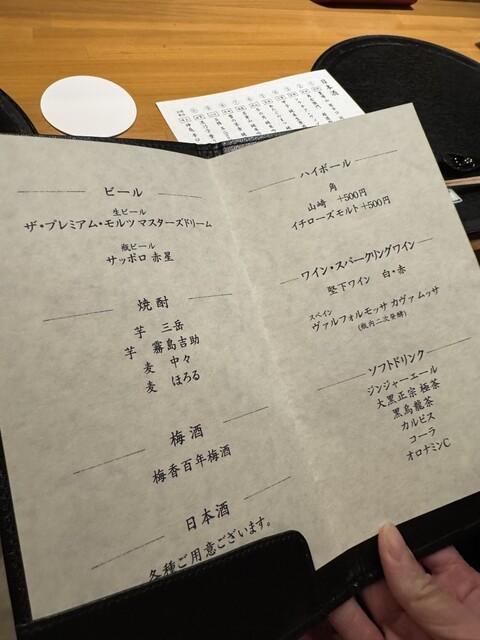 ビール
生ビール
ザ・プレミアム・モルツ マスターズドリーム
瓶ビール
サッポロ 赤星
焼酎
芋 三岳
芋 霧島吉助
麦 中々
麦 ほろる
梅酒
梅香百年梅酒
日本酒
各種ご用意ございます。
ハイボール
角
山崎 +500円
イチローズモルト+500円
ワイン・スパークリングワイン
竪下ワイン 白・赤
スペイン
ヴァルフォルモッサ カヴァ ムッサ
(瓶内二次発酵)
ソフトドリンク
ジンジャーエール
大黒正宗 極茶
黒烏龍茶
カルピス
コーラ
オロナミンC
日本酒